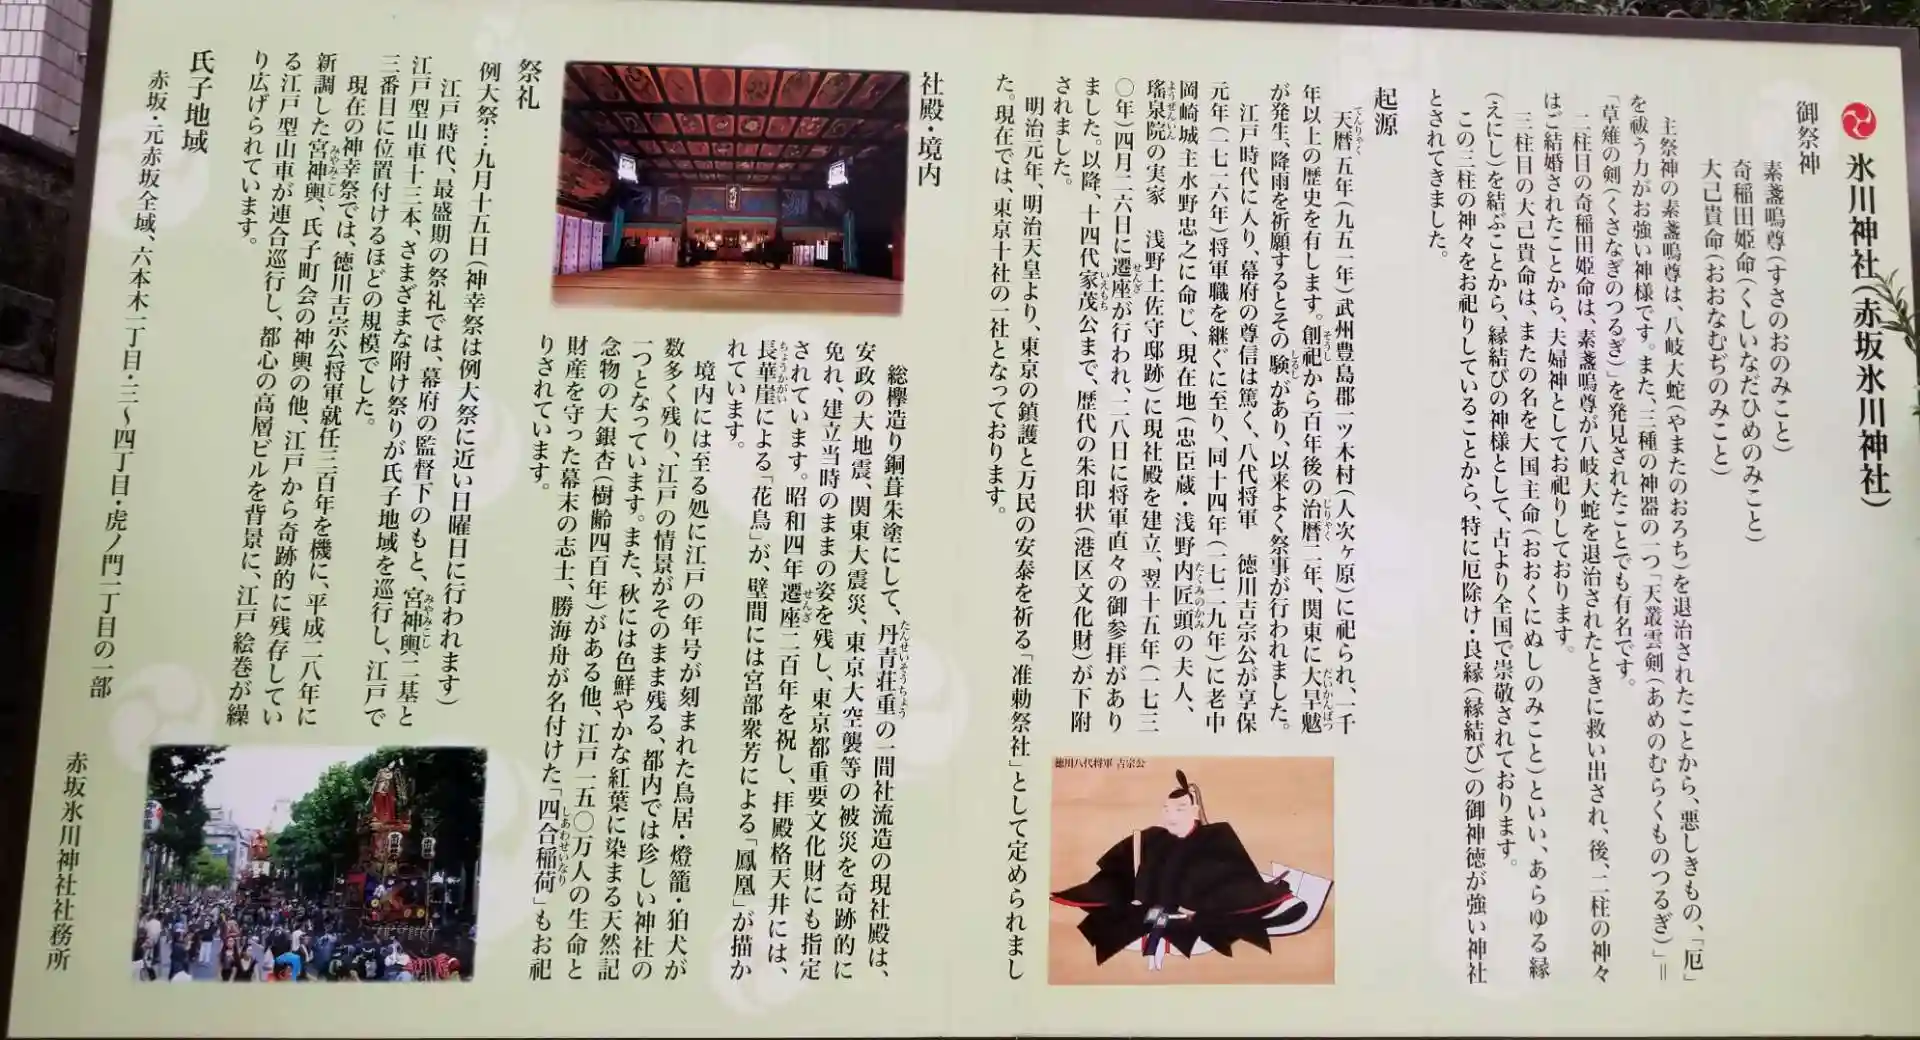 氷川神社(赤坂氷川神社)
御祭神
素盞嗚尊(すさのおのみこと)
奇稲田姫命(くしいなだひめのみこと)
大己貴命(おおなむぢのみこと)
主祭神の素盞嗚尊は、八岐大蛇(やまたのおろち)を退治されたことから、悪しきもの、「厄」
を祓う力がお強い神様です。また、三種の神器の一つ「天叢雲剣(あめのむらくものつるぎ)」=
「草薙の剣(くさなぎのつるぎ)」を発見されたことでも有名です。
二柱目の奇稲田姫命は、素盞嗚尊が八岐大蛇を退治されたときに救い出され、後、二柱の神々
はご結婚されたことから、夫婦神としてお祀りしております。
三柱目の大己貴命は、またの名を大国主命(おおくにぬしのみこと)といい、あらゆる縁
(えにし)を結ぶことから、縁結びの神様として、古より全国で崇敬されております。
この三柱の神々をお祀りしていることから、特に厄除け・良縁(縁結び)の御神徳が強い神社
とされてきました。
起源
天暦五年(九五一年)武州豊島郡一ツ木村(人次ヶ原)に祀られ、一千
年以上の歴史を有します。創祀から百年後の治暦二年、関東に大旱魃
が発生、降雨を祈願するとその験があり、以来よく祭事が行われました。
江戸時代に入り、幕府の尊信は篤く、八代将軍 徳川吉宗公が享保
元年(一七一六年)将軍職を継ぐに至り、同十四年(一七二九年)に老中
岡崎城主水野忠之に命じ、現在地(忠臣蔵・浅野内匠頭の夫人、
瑤泉院の実家 浅野土佐守邸跡)に現社殿を建立、翌十五年(一七三
〇年)四月二六日に遷座が行われ、二八日に将軍直々の御参拝があり
ました。以降、十四代家茂公まで、歴代の朱印状(港区文化財)が下附
されました。
明治元年、明治天皇より、東京の鎮護と万民の安泰を祈る「准勅祭社」として定められまし
た。現在では、東京十社の一社となっております。
徳川八代将軍 吉宗公
社殿・境内
総欅造り銅葺朱塗にして、丹青荘重の一間社流造の現社殿は、
安政の大地震、関東大震災、東京大空襲等の被災を奇跡的に
免れ、建立当時のままの姿を残し、東京都重要文化財にも指定
されています。昭和四年遷座二百年を祝し、拝殿格天井には、
長華崖による「花鳥」が、壁間には宮部衆芳による「鳳凰」が描か
れています。
境内には至る処に江戸の年号が刻まれた鳥居・燈籠・狛犬が
数多く残り、江戸の情景がそのまま残る、都内では珍しい神社の
一つとなっています。また、秋には色鮮やかな紅葉に染まる天然記
念物の大銀杏(樹齢四百年)がある他、江戸一五〇万人の生命と
財産を守った幕末の志士、勝海舟が名付けた「四合稲荷」もお祀
りされています。
祭礼
例大祭…九月十五日(神幸祭は例大祭に近い日曜日に行われます)
江戸時代、最盛期の祭礼では、幕府の監督下のもと、宮神輿二基と
江戸型山車十三本、さまざまな附け祭りが氏子地域を巡行し、江戸で
三番目に位置付けるほどの規模でした。
現在の神幸祭では、徳川吉宗公将軍就任三百年を機に、平成二八年に
新調した宮神輿、氏子町会の神輿の他、江戸から奇跡的に残存してい
る江戸型山車が連合巡行し、都心の高層ビルを背景に、江戸絵巻が繰
り広げられています。
氏子地域
赤坂・元赤坂全域、六本木一丁目・三〜四丁目・虎ノ門二丁目の一部
赤坂氷川神社社務所